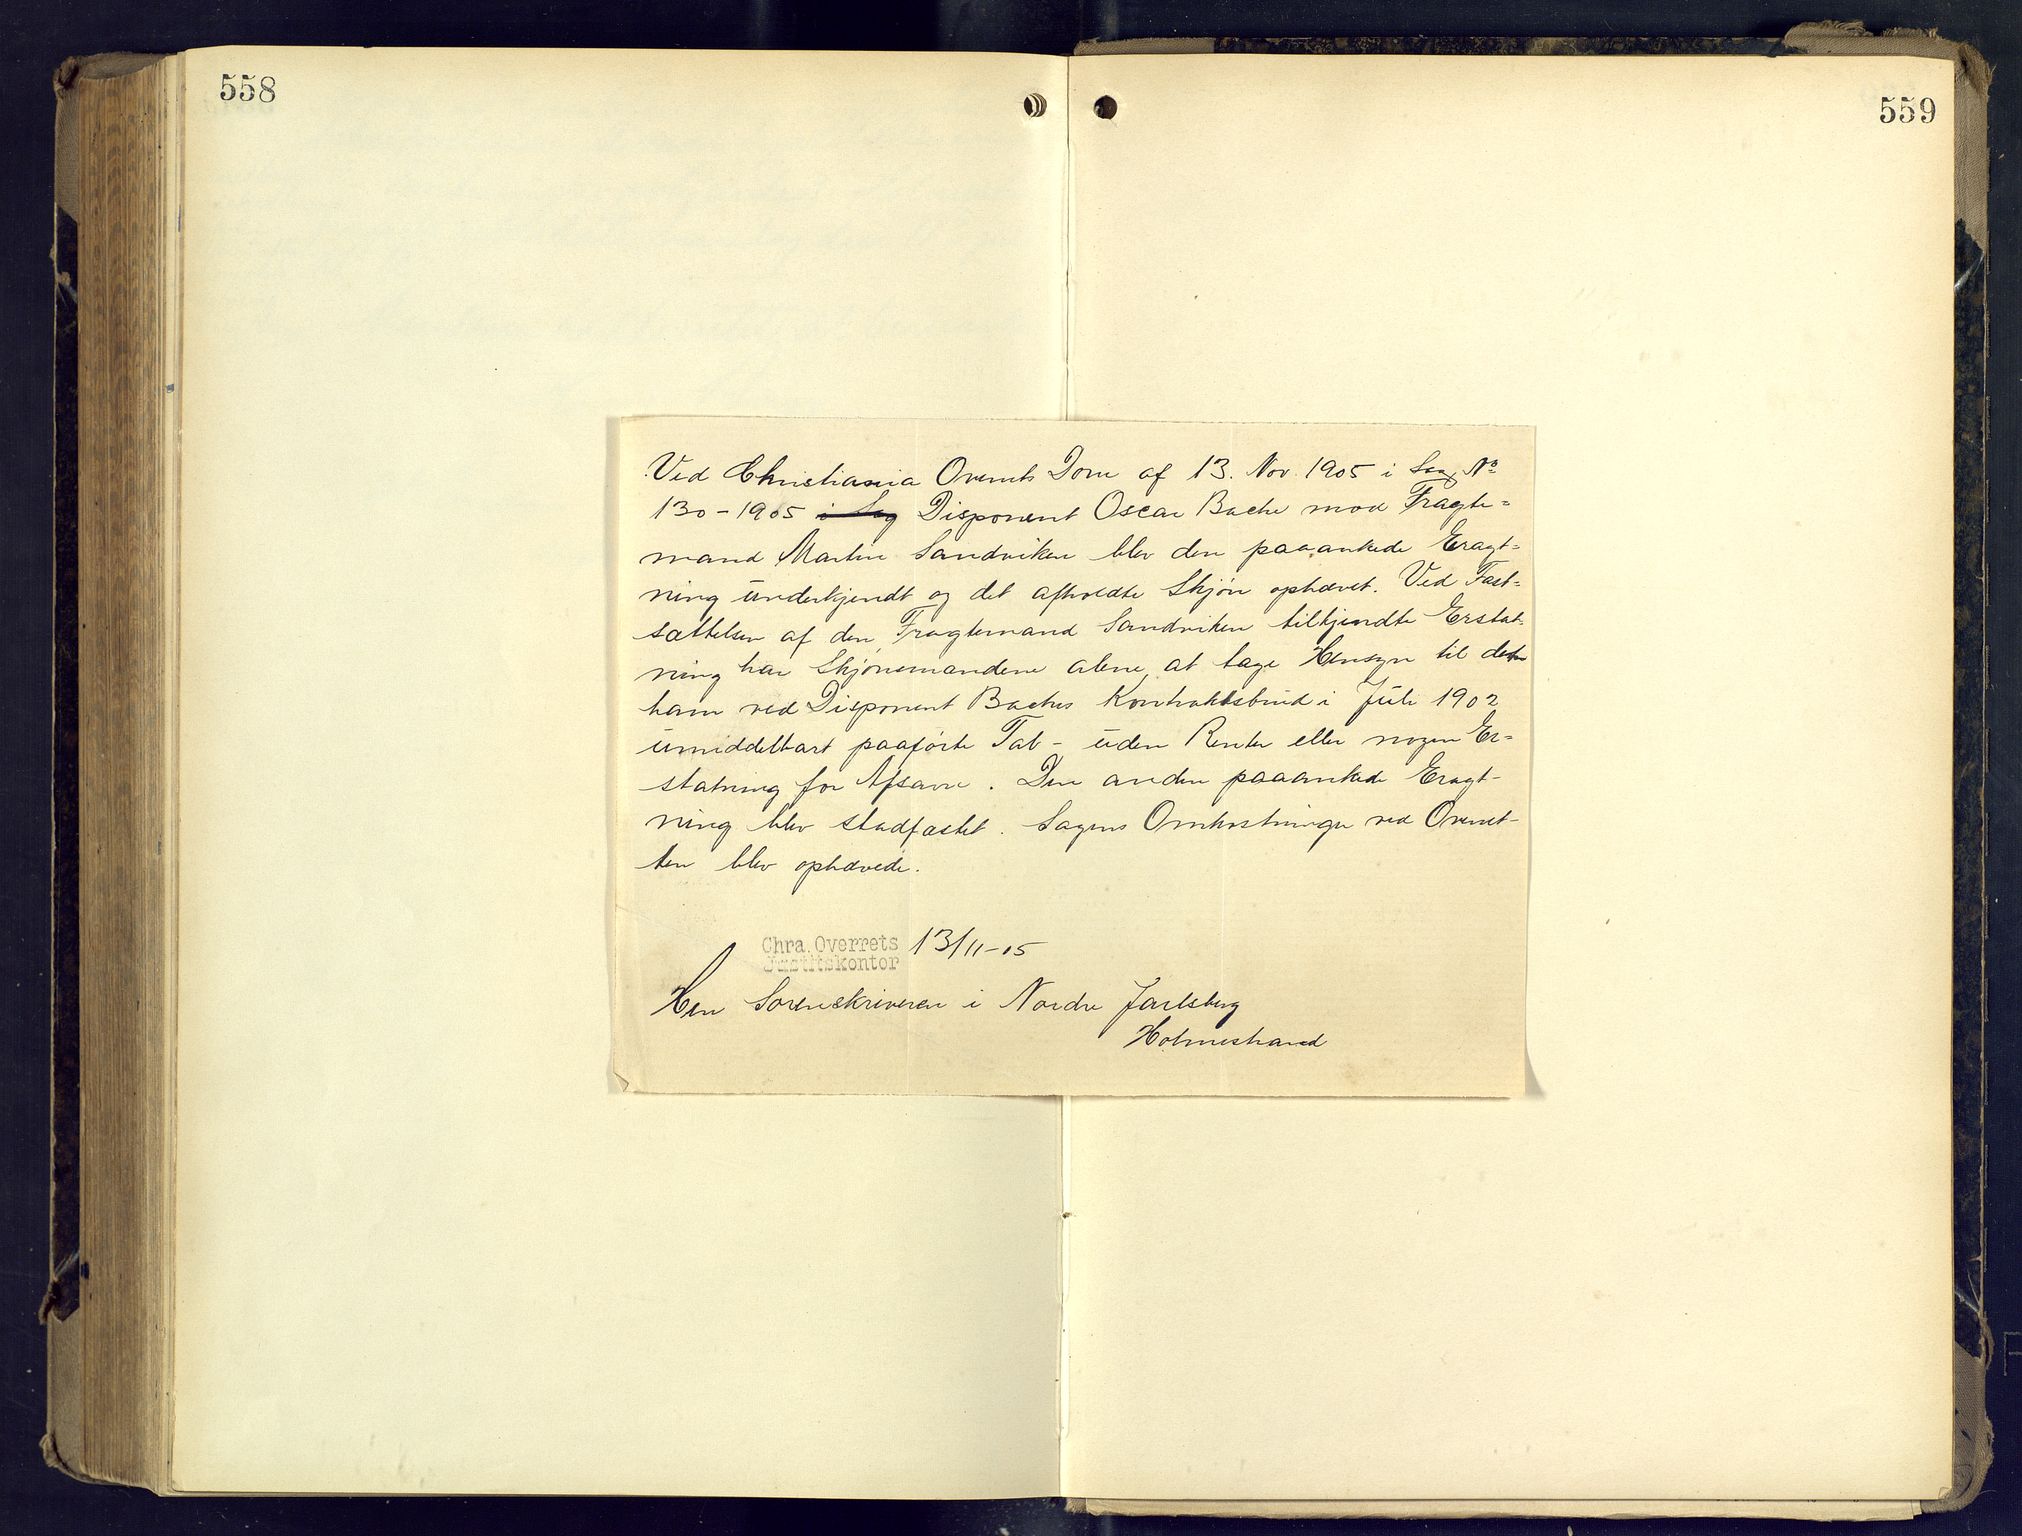 558
559
Ved Christiania Overrets Dom af 13. Nov. 1905 i Sag No
130-1905 i Sag Disponent Oscar Bache mod Fragte=
mand Martin Sandviken blev den paaankede Eragt=
ning underkjendt og det afholdte Skjøn ophævet. Ved Fast=
sættelsen af den Fragtemand Sandviken tilkjendte Erstat-
ning har Skjønsmændene alene at tage Hensyn til det
ham ved Disponent Baches Kontraktsbrud i Juli 1902
umiddelbart paaførte Tab - uden Renter eller nogen Er=
statning for Afsavn. Den anden paaankede Eragt-
ning blev stadfæstet. Sagens Omkostninger ved Overret-
ten blev ophævede.
Chra. Overrets
Justitskontor
13/11-05
Herr Sorenskriveren i Nordre Jarlsberg
Holmestrand